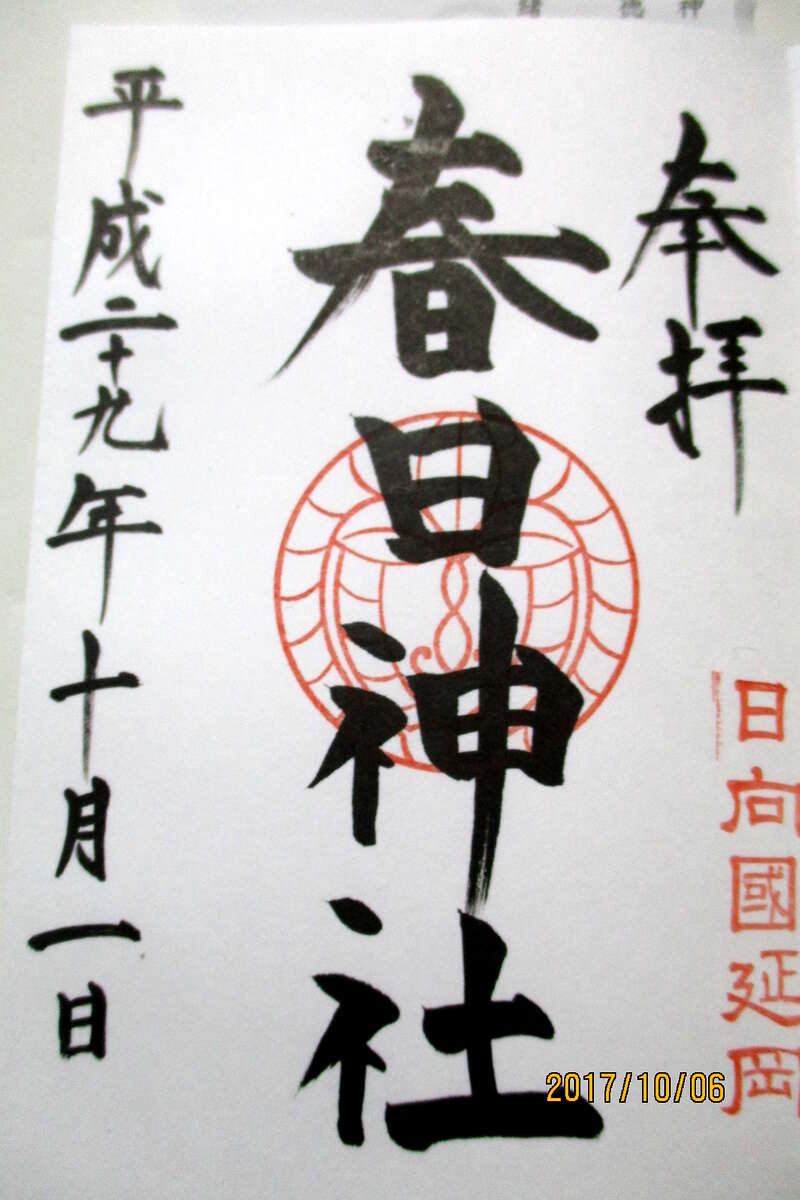 奉拝
日向國延岡
春日神社
平成二十九年十月一日
2017/10/06